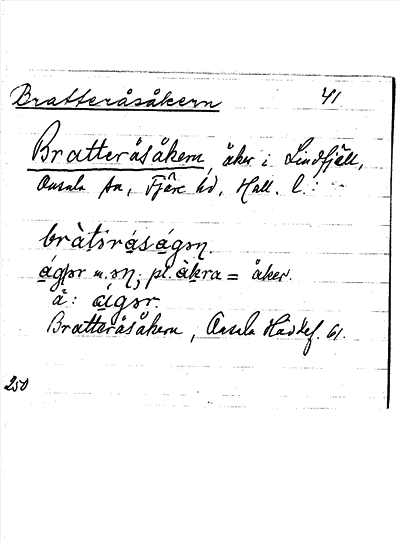 Bratteråsåkern 41
Bratteråsåkern, åker i Lindfjäll,
Onsala sn, Fjäre hd, Hall. l.:
bràt𝑖ràság𝑜ɳ.
ág|ər m. ɔɳ; pl. àkra = åker.
å: áigɔr.
Bratteråsåkern, Onsala Havdkf. 61.
250